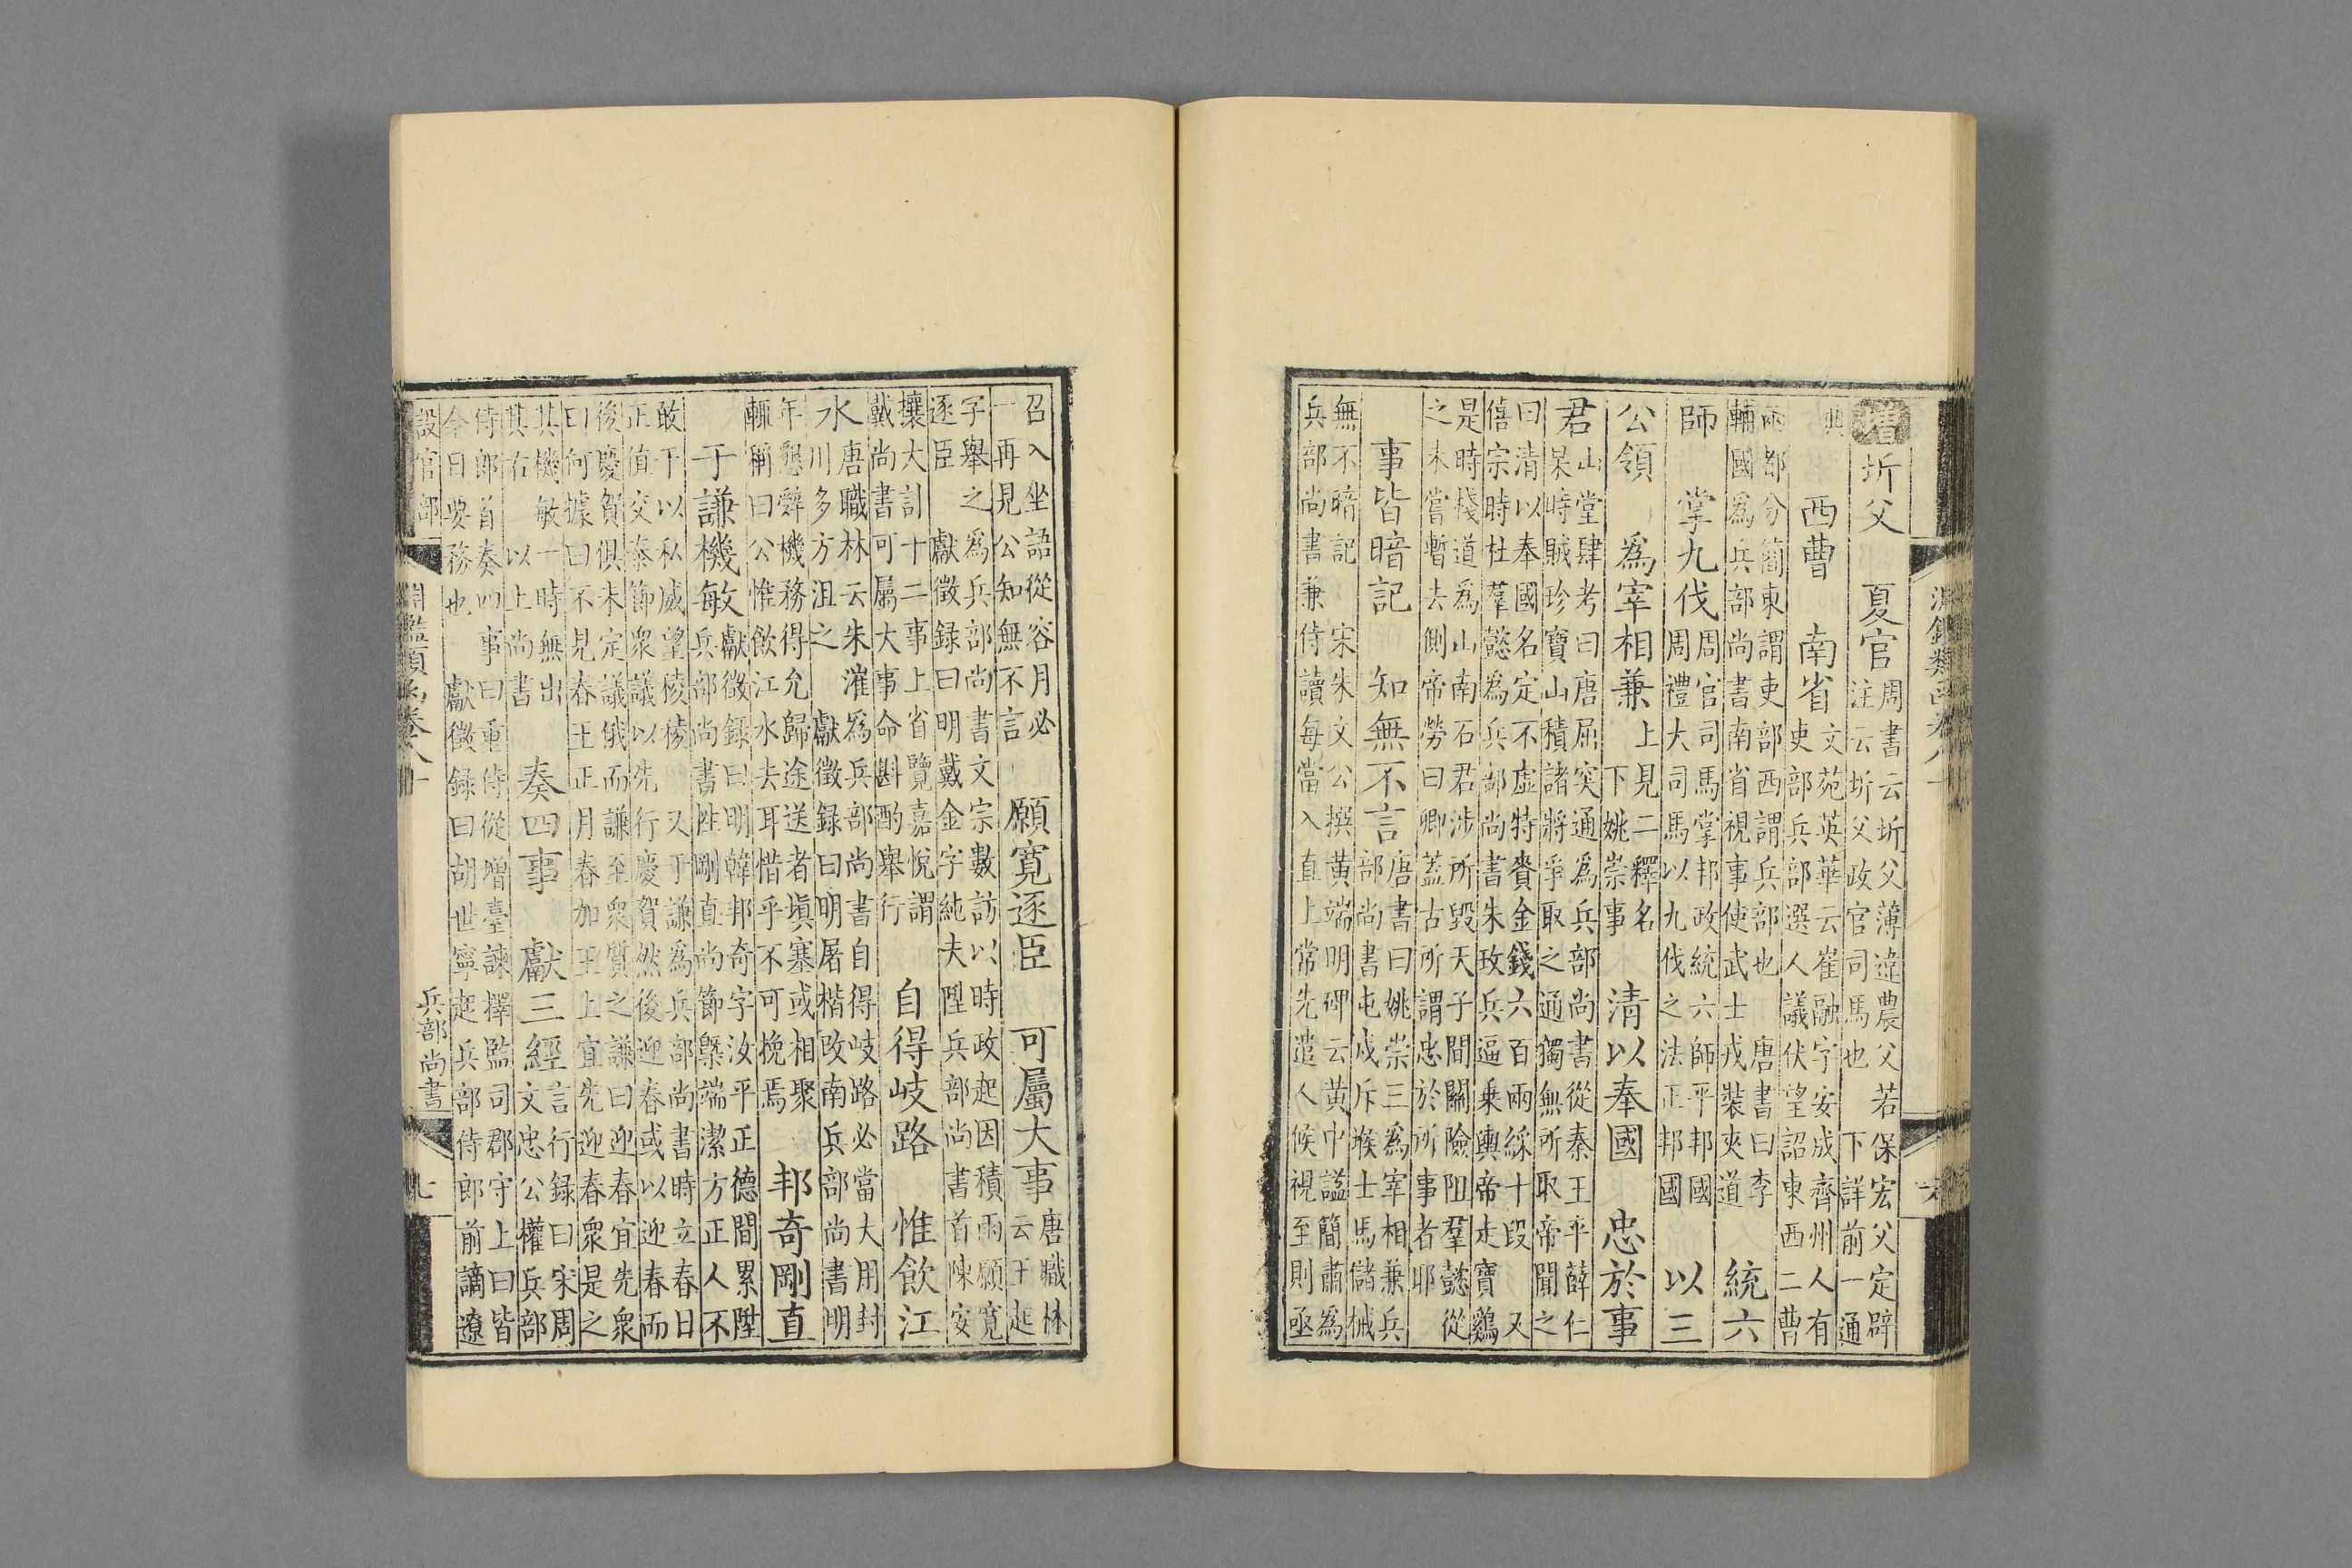 淵鑑類函卷八十
六
增 圻父 夏官 周書云圻父薄違農父若保宏父定辟 注云圻父政官司馬也 下詳前一通
典 西曹 南省 文苑英華云崔融字安成齊州人有 吏部兵部選人議伏望詔東西二曹
兩都分簡東謂吏部西謂兵部也 唐書曰李 輔國爲兵部尚書南省視事使武士戎裝夾道 統六
師 掌九伐 周官司馬掌邦政統六師平邦國 周禮大司馬以九伐之法正邦國 以三
公領 爲宰相兼 上見二釋名 下姚崇事 清以奉國 忠於事
君 山堂肆考曰唐屈突通爲兵部尚書從秦王平薛仁 杲時賊珍寶山積諸將爭取之通獨無所取帝聞之
曰清以奉國名定不虛特賚金錢六百兩綵十段 又 僖宗時杜羣懿爲兵部尚書朱玫兵逼乗輿帝走寶鷄
是時棧道爲山南石君涉所毀天子間關險阻羣懿從 之未嘗暫去側帝勞曰卿蓋古所謂忠於所事者耶
事皆暗記 知無不言 唐書曰姚崇三爲宰相兼兵 部尚書屯戍斥堠士馬儲械
無不暗記 宋朱文公撰黄端明碑云黄中謚簡肅爲 兵部尚書兼侍讀每當入直上常先遣人候視至則亟
召入坐語從容月必 一再見公知無不言 願寛逐臣 可屬大事 唐職林 云王起
字舉之爲兵部尚書文宗數訪以時政起因積雨願寛 逐臣 獻徵録曰明戴金字純夫陞兵部尚書首陳安
攘大計十二事上省覽嘉悅謂 戴尚書可屬大事命斟酌舉行 自得岐路 惟飲江
水 唐職林云朱漼爲兵部尚書自得岐路必當大用封 川多方沮之 獻徵録曰明屠楷改南兵部尚書明
年懇辭機務得允歸途送者塡塞或相聚 輒稱曰公惟飲江水去耳惜乎不可挽焉 邦奇剛直
于謙機敏 獻徵録曰明韓邦奇字汝平正德間累陞 兵部尚書性剛直尚節槩端潔方正人不
敢干以私威望稜稜 又于謙爲兵部尚書時立春日 正值交泰節衆議以先行慶賀然後迎春或以迎春而
後慶賀俱未定議俄而謙至衆質之謙曰迎春宜先衆 曰何據曰不見春王正月春加王上宜先迎春衆是之
其機敏一時無出 其右 以上尚書 奏四事 獻三經 言行録曰宋周 文忠公權兵部
侍郎首奏四事曰重侍從增臺諫擇監司郡守上曰皆 今日要務也 獻徵録曰胡世寧起兵部侍郎前謫遼
設官部 淵鑑類函卷八十 兵部尚書 七